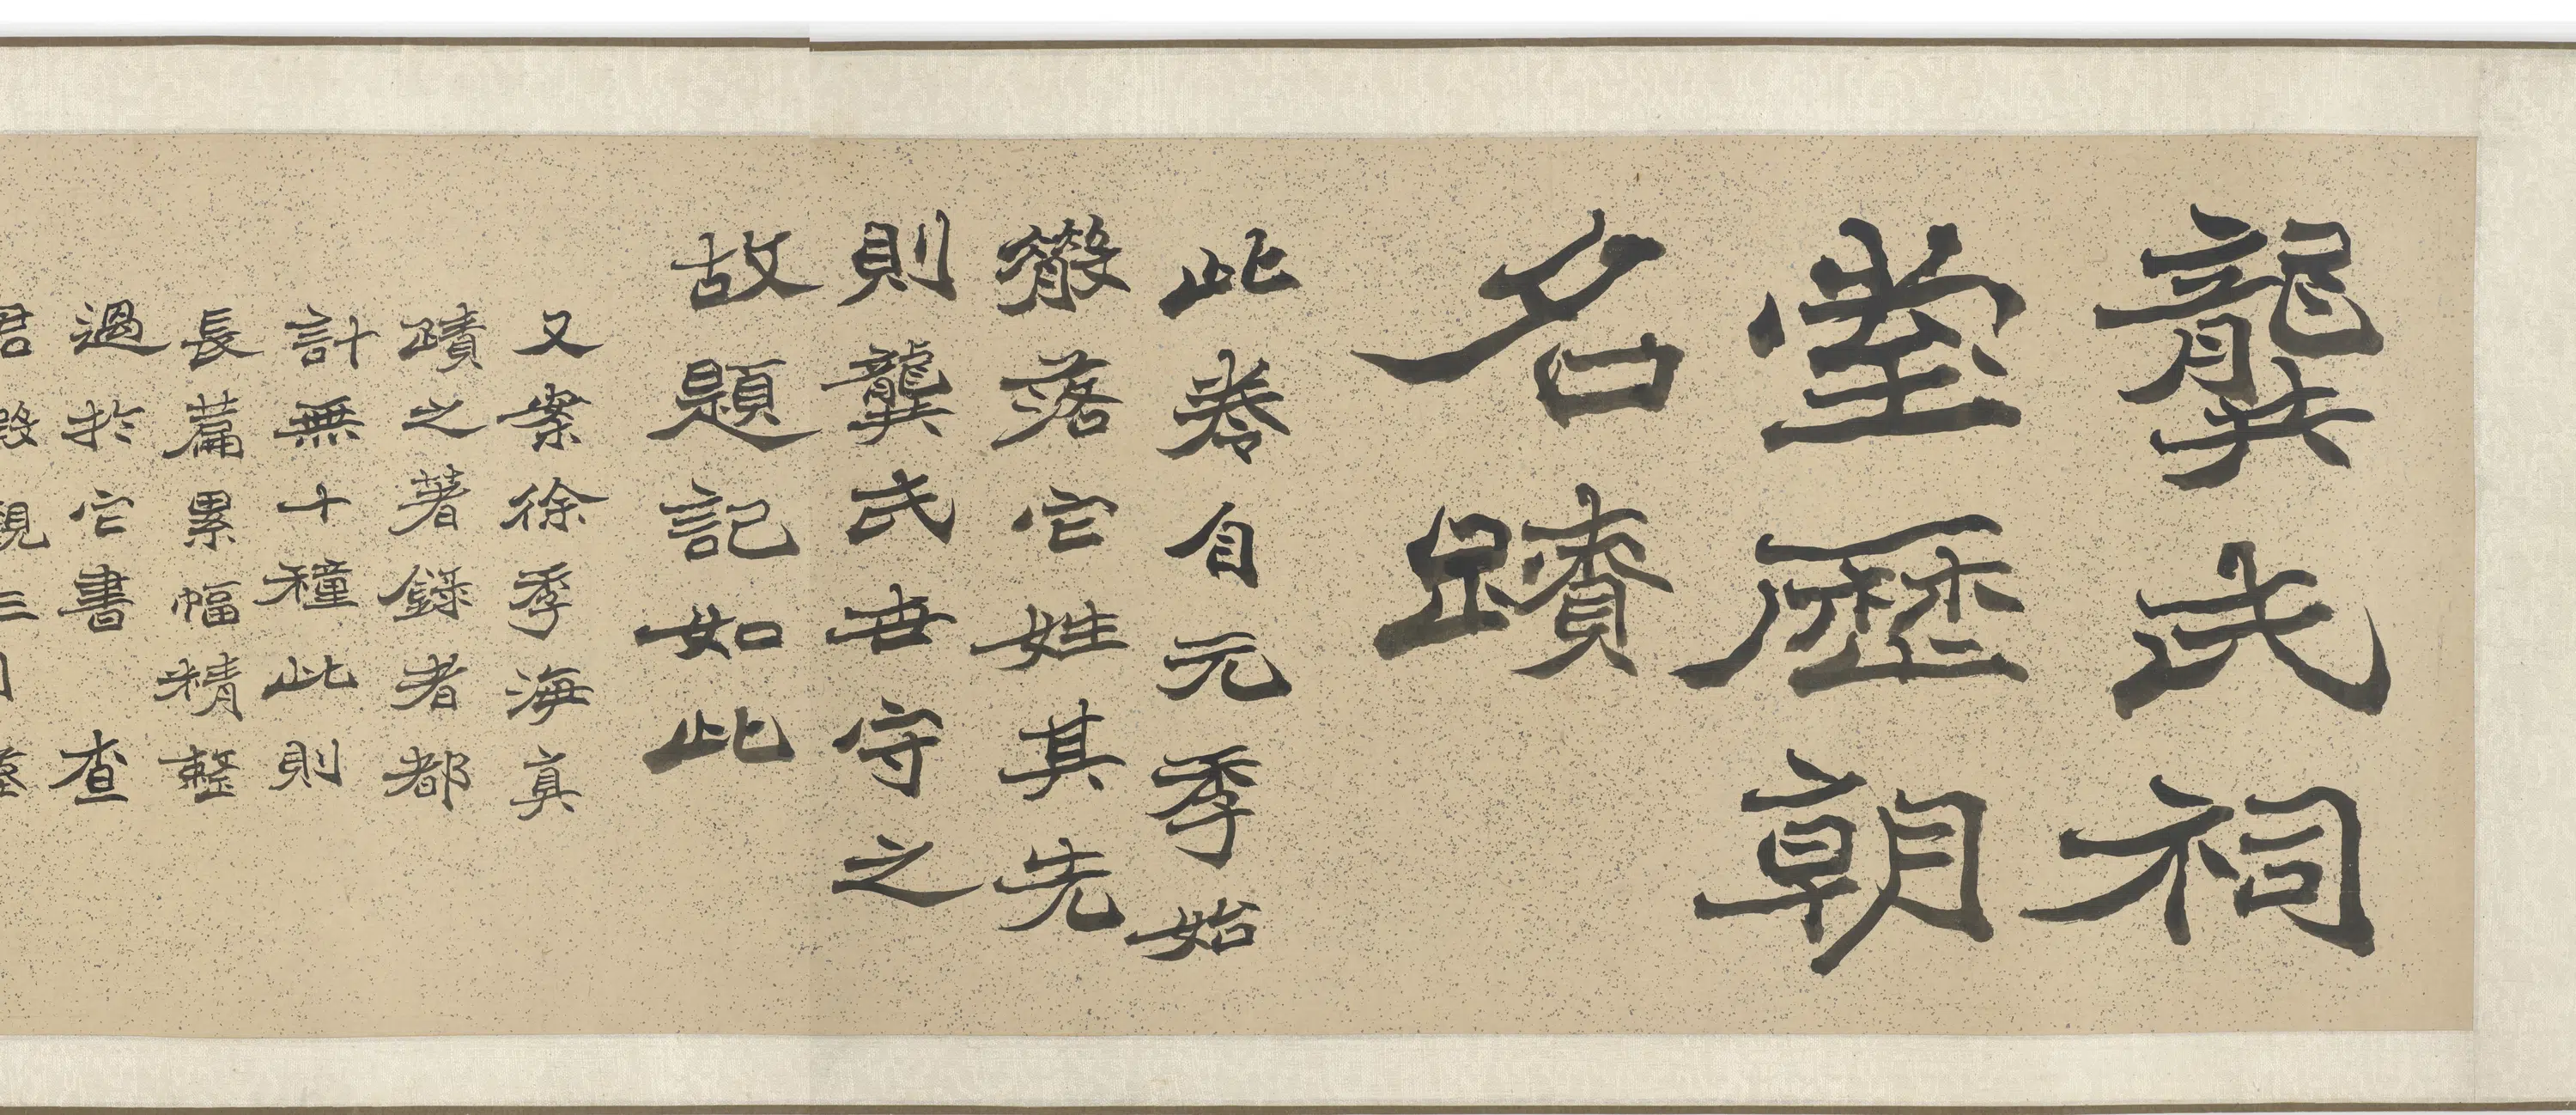 龔氏祠
堂歷朝
名蹟
此卷自元季始
散落它姓其先
則龔氏世守之
故題記如此
又案徐季海真
蹟之著錄者都
計無十種此則
長篇累幅精整
過於它書查